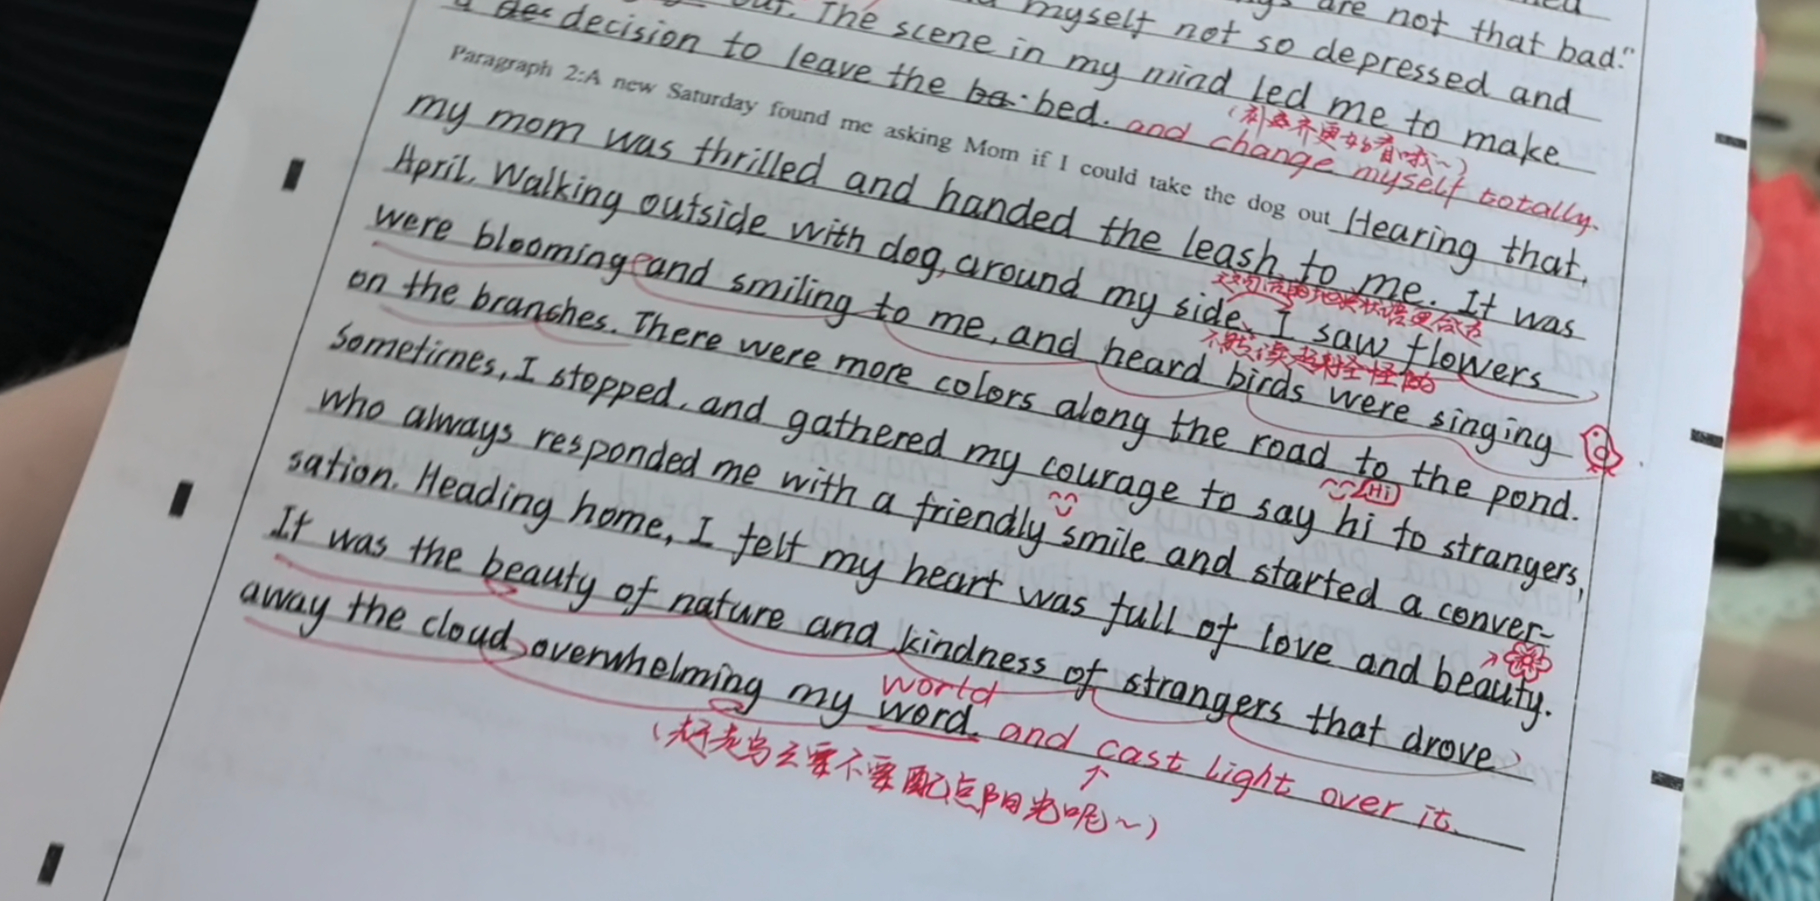 are not that bad."
out. The scene in myself not so depressed and
decision to leave the bed. my mind led me to make
(补齐更好看哦~)
and change myself totally.
Paragraph 2:A new Saturday found me asking Mom if I could take the dog out Hearing that,
my mom was thrilled and handed the leash to me. It was
April. Walking outside with dog, around my side, I saw flowers
不然读起来怪怪的
were blooming and smiling to me, and heard birds were singing
on the branches. There were more colors along the road to the pond.
Hi
Sometimes, I stopped, and gathered my courage to say hi to strangers,
who always responded me with a friendly smile and started a conver-
sation. Heading home, I felt my heart was full of love and beauty.
It was the beauty of nature and kindness of strangers that drove
away the cloud overwhelming my word. and cast light over it.
world
(赶走乌云要不要配点阳光呢~)